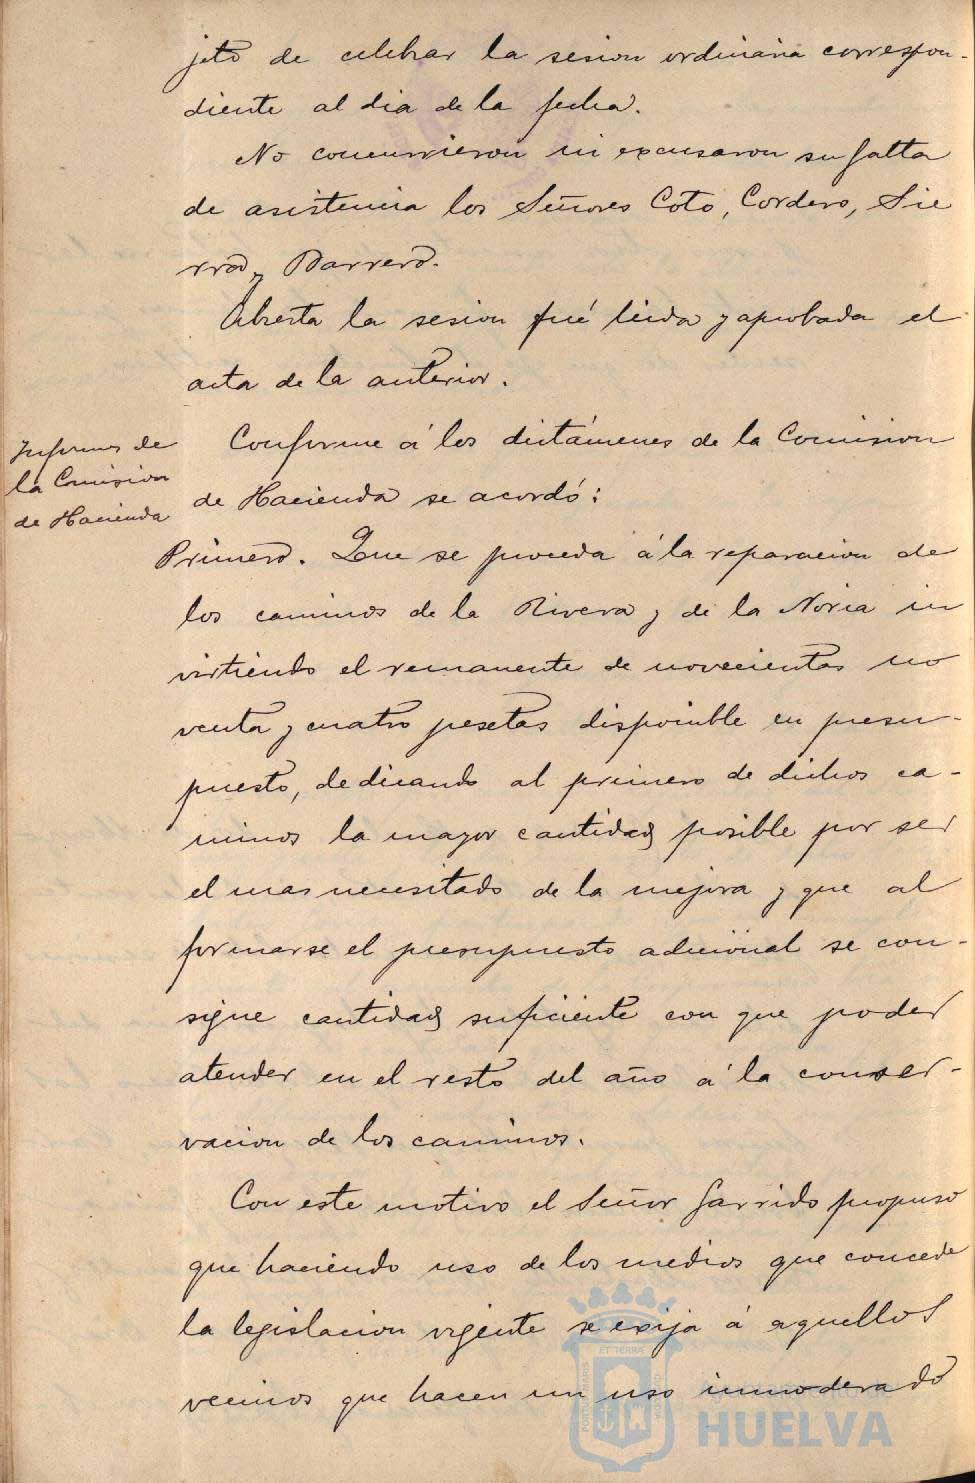 jeto de celebrar la sesion ordinaria correspon-
diente al dia de la fecha.
No concurrieron ni excusaron su falta
de asistencia los Señores Coto, Cordero, Sie
rra y Barrero.
Abierta la sesion fué leida y aprobada el
acta de la anterior.
Informes de
la Comision
de Hacienda
Conforme á los dictámenes de la Comision
de Hacienda se acordó:
Primero. Que se proceda á la reparacion de
los caminos de la Rivera y de la Noria in
virtiendo el remanente de novecientas no
venta y cuatro pesetas disponible en presu-
puesto, dedicando al primero de dichos ca-
minos la mayor cantidad posible por ser
el mas necesitado de la mejora y que al
formarse el presupuesto adicional se con-
signe cantidad suficiente con que poder
atender en el resto del año á la conser-
vacion de los caminos.
Con este motivo el Señor Garrido propuso
que haciendo uso de los medios que concede
la legislacion vigente se exija á aquellos
vecinos que hacen un uso inmoderado
HUELVA